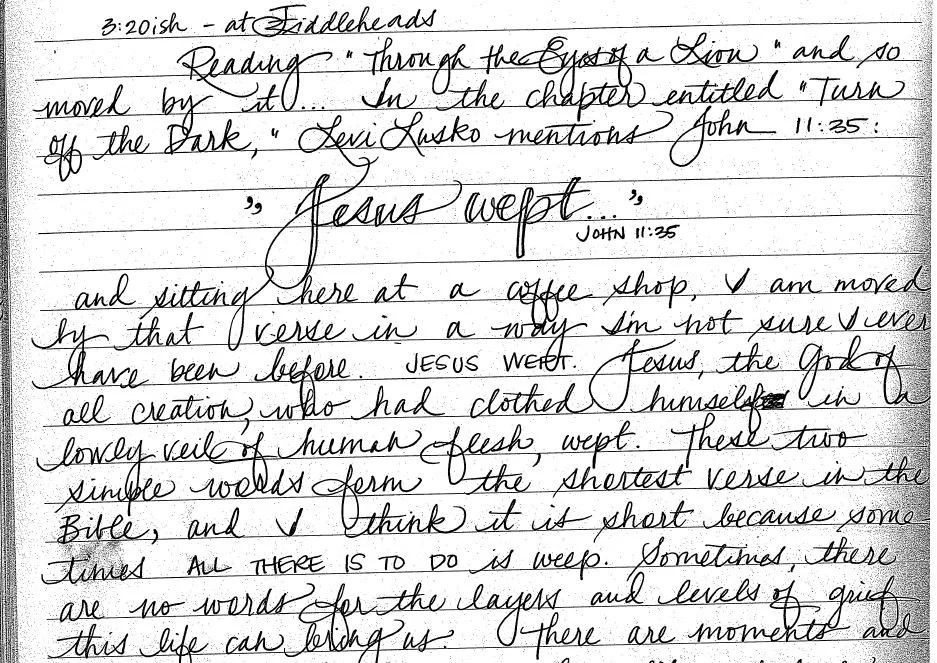 3:20ish - at Fiddleheads
Reading "Through the Eyes of a Lion" and so
moved by it... In the chapter entitled "Turn
off the Dark," Levi Lusko mentions John 11:35:
"Jesus wept..."
JOHN 11:35
and sitting here at a coffee shop, I am moved
by that verse in a way I'm not sure I ever
have been before. JESUS WEPT. Jesus, the God of
all creation, who had clothed himself in a
lowly veil of human flesh, wept. These two
simple words form the shortest verse in the
Bible, and I think it is short because some
times ALL THERE IS TO DO is weep. Sometimes, there
are no words for the layers and levels of grief
this life can bring us. There are moments and